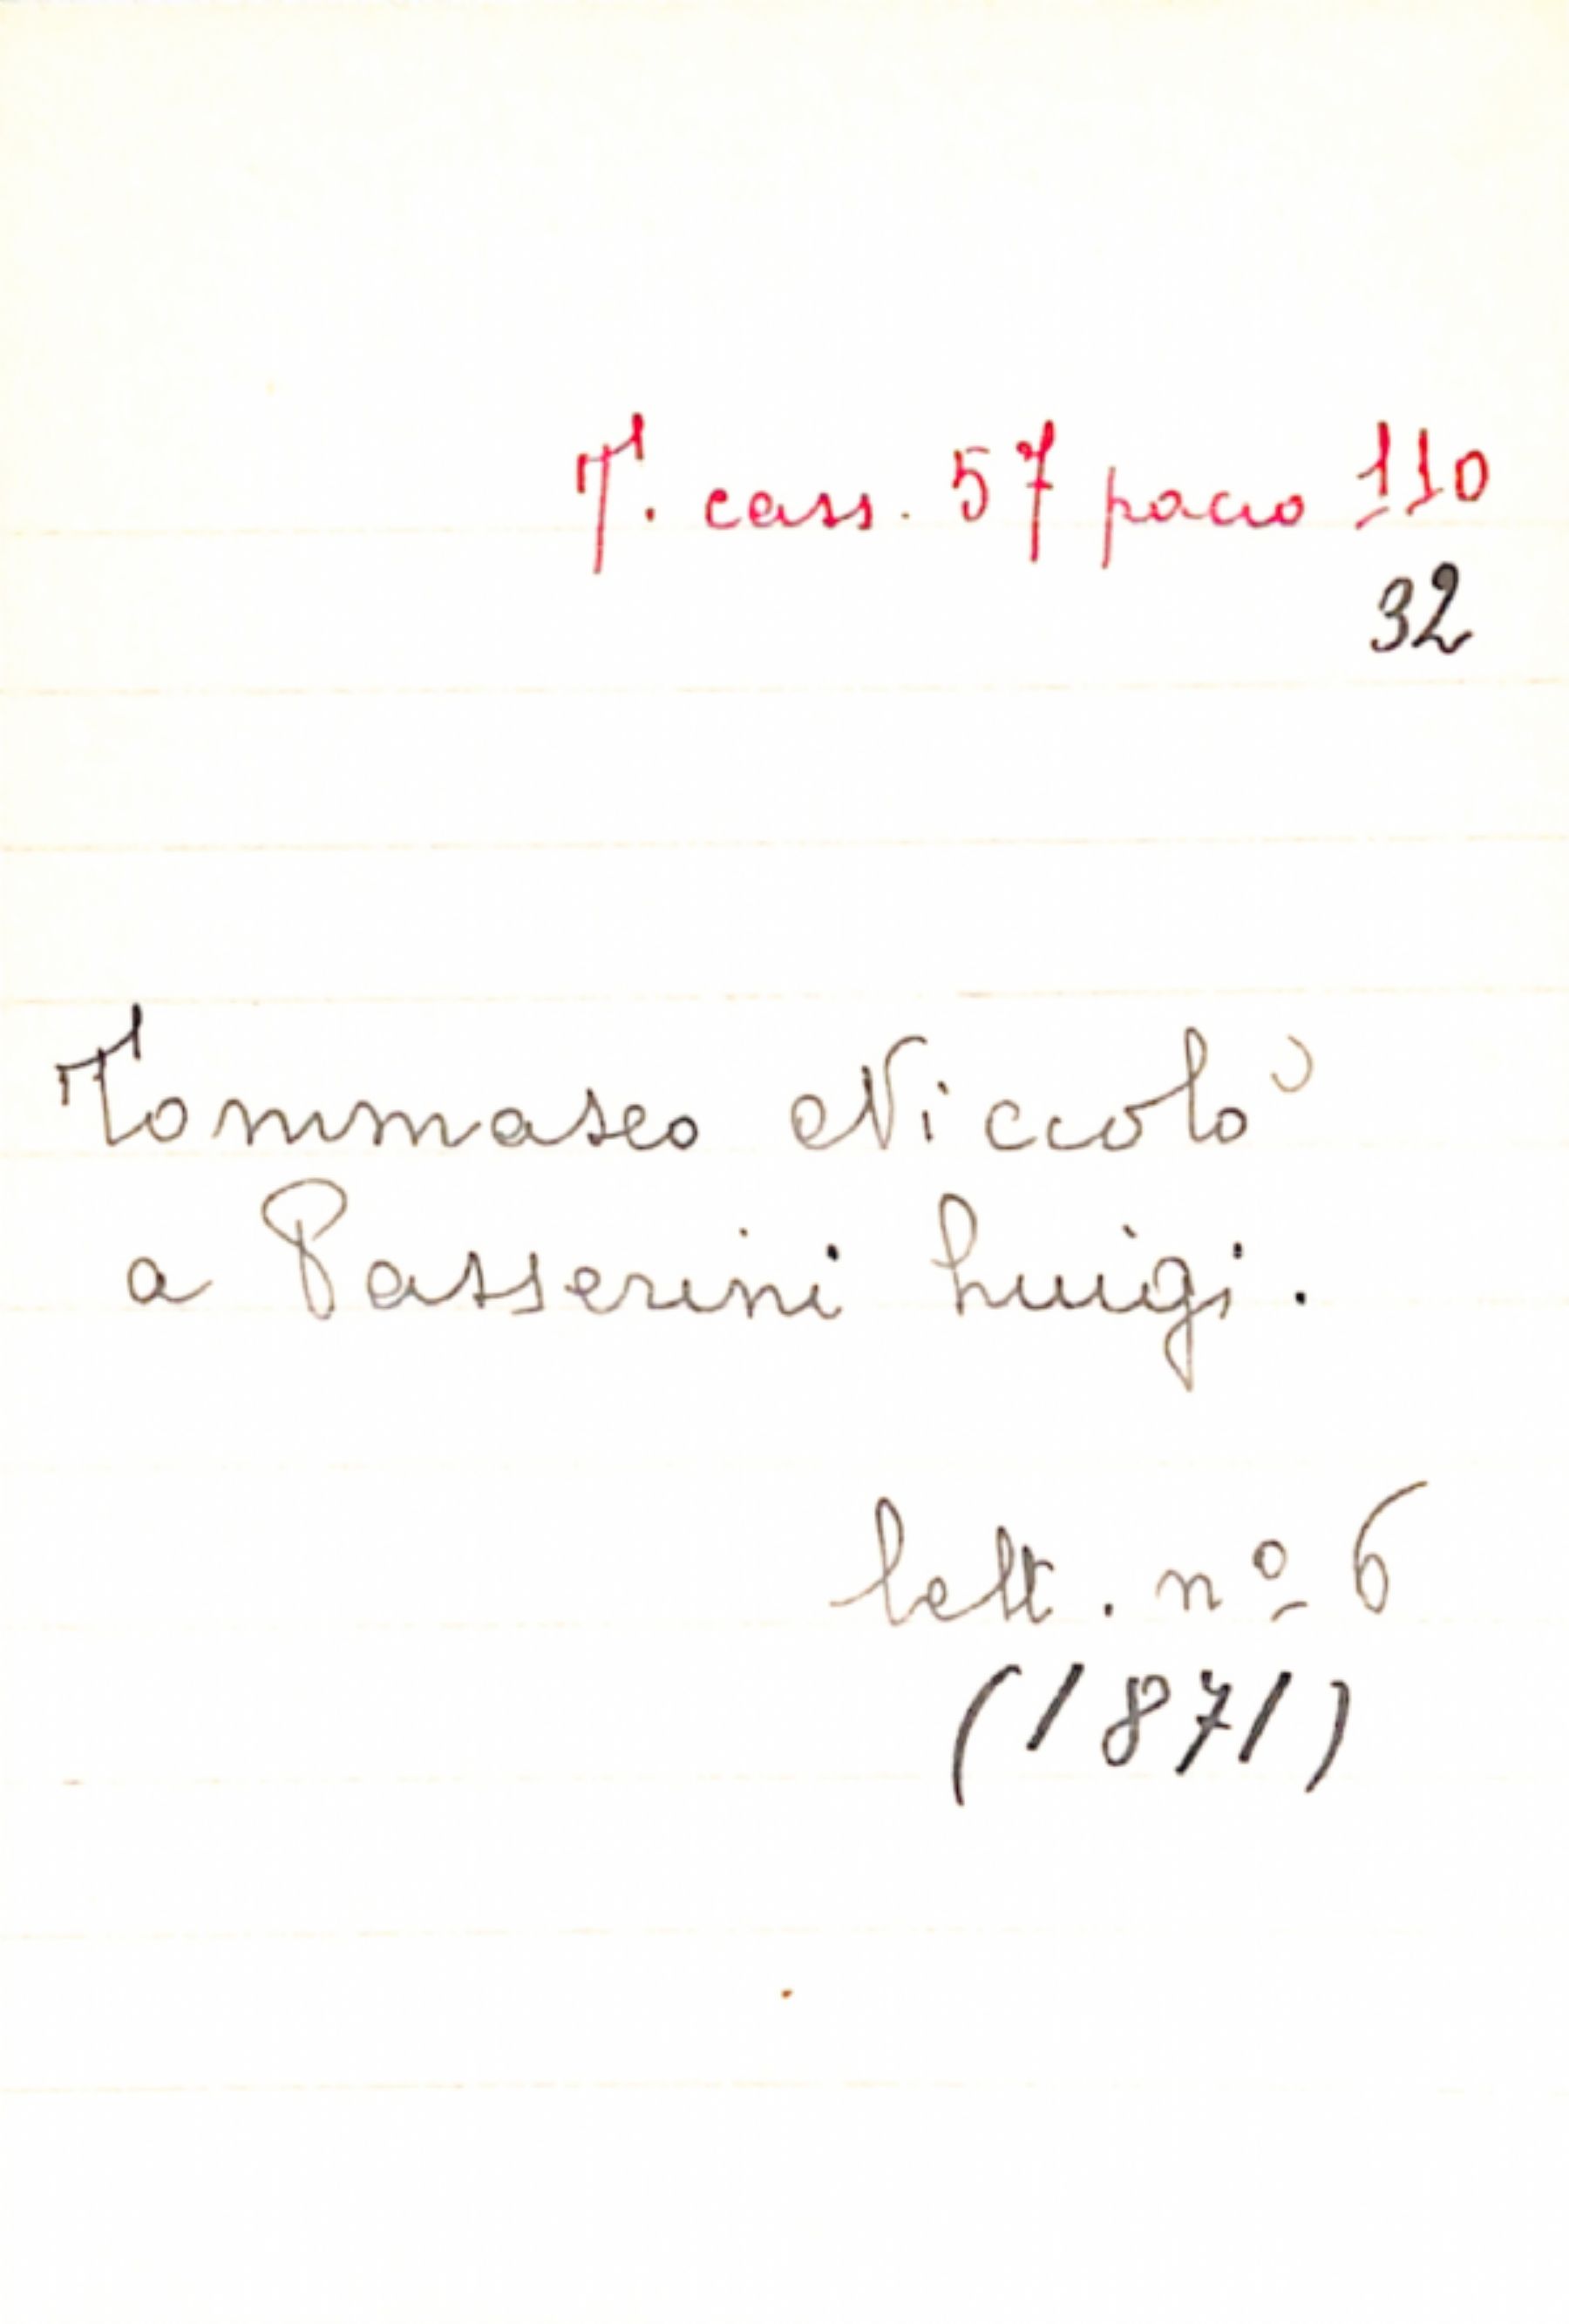 T. cass. 57 pacco 110
32
Tommaseo Niccolò
a Passerini Luigi.
lett. nº 6
(1871)